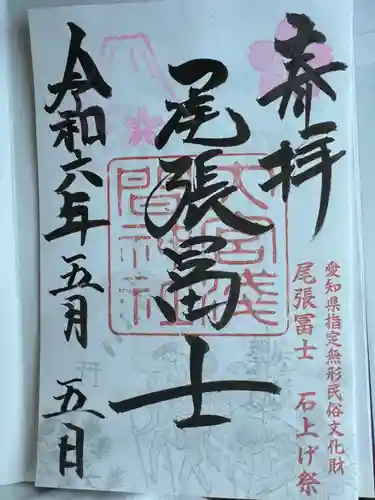 奉拝
愛知県指定無形民俗文化財
尾張冨士　石上げ祭
尾張冨士
大宮浅間神社
令和六年五月五日